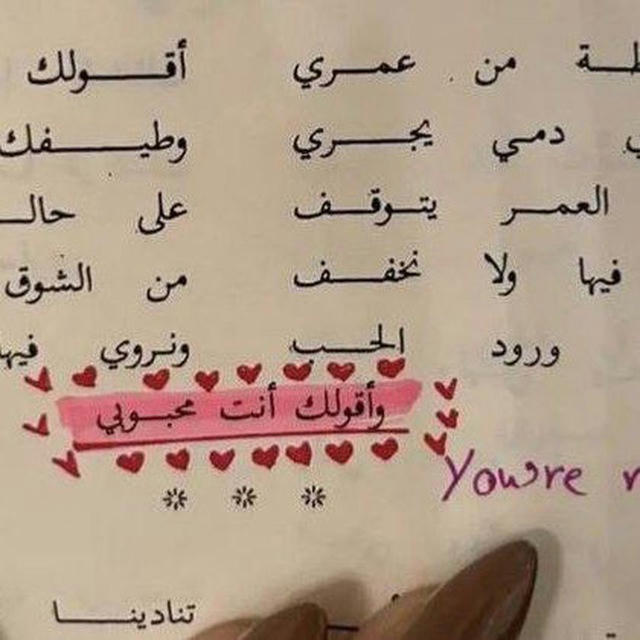 من عمـــري أقــــولك
دمي يجـــري وطيـــفك
العمــر يتــوقــف على حالـ
فيها ولا نخفــف من الشوق
ورود الحـــب ونــروي فيه
وأقولك أنت محبوبي
You're
تنادينـــا